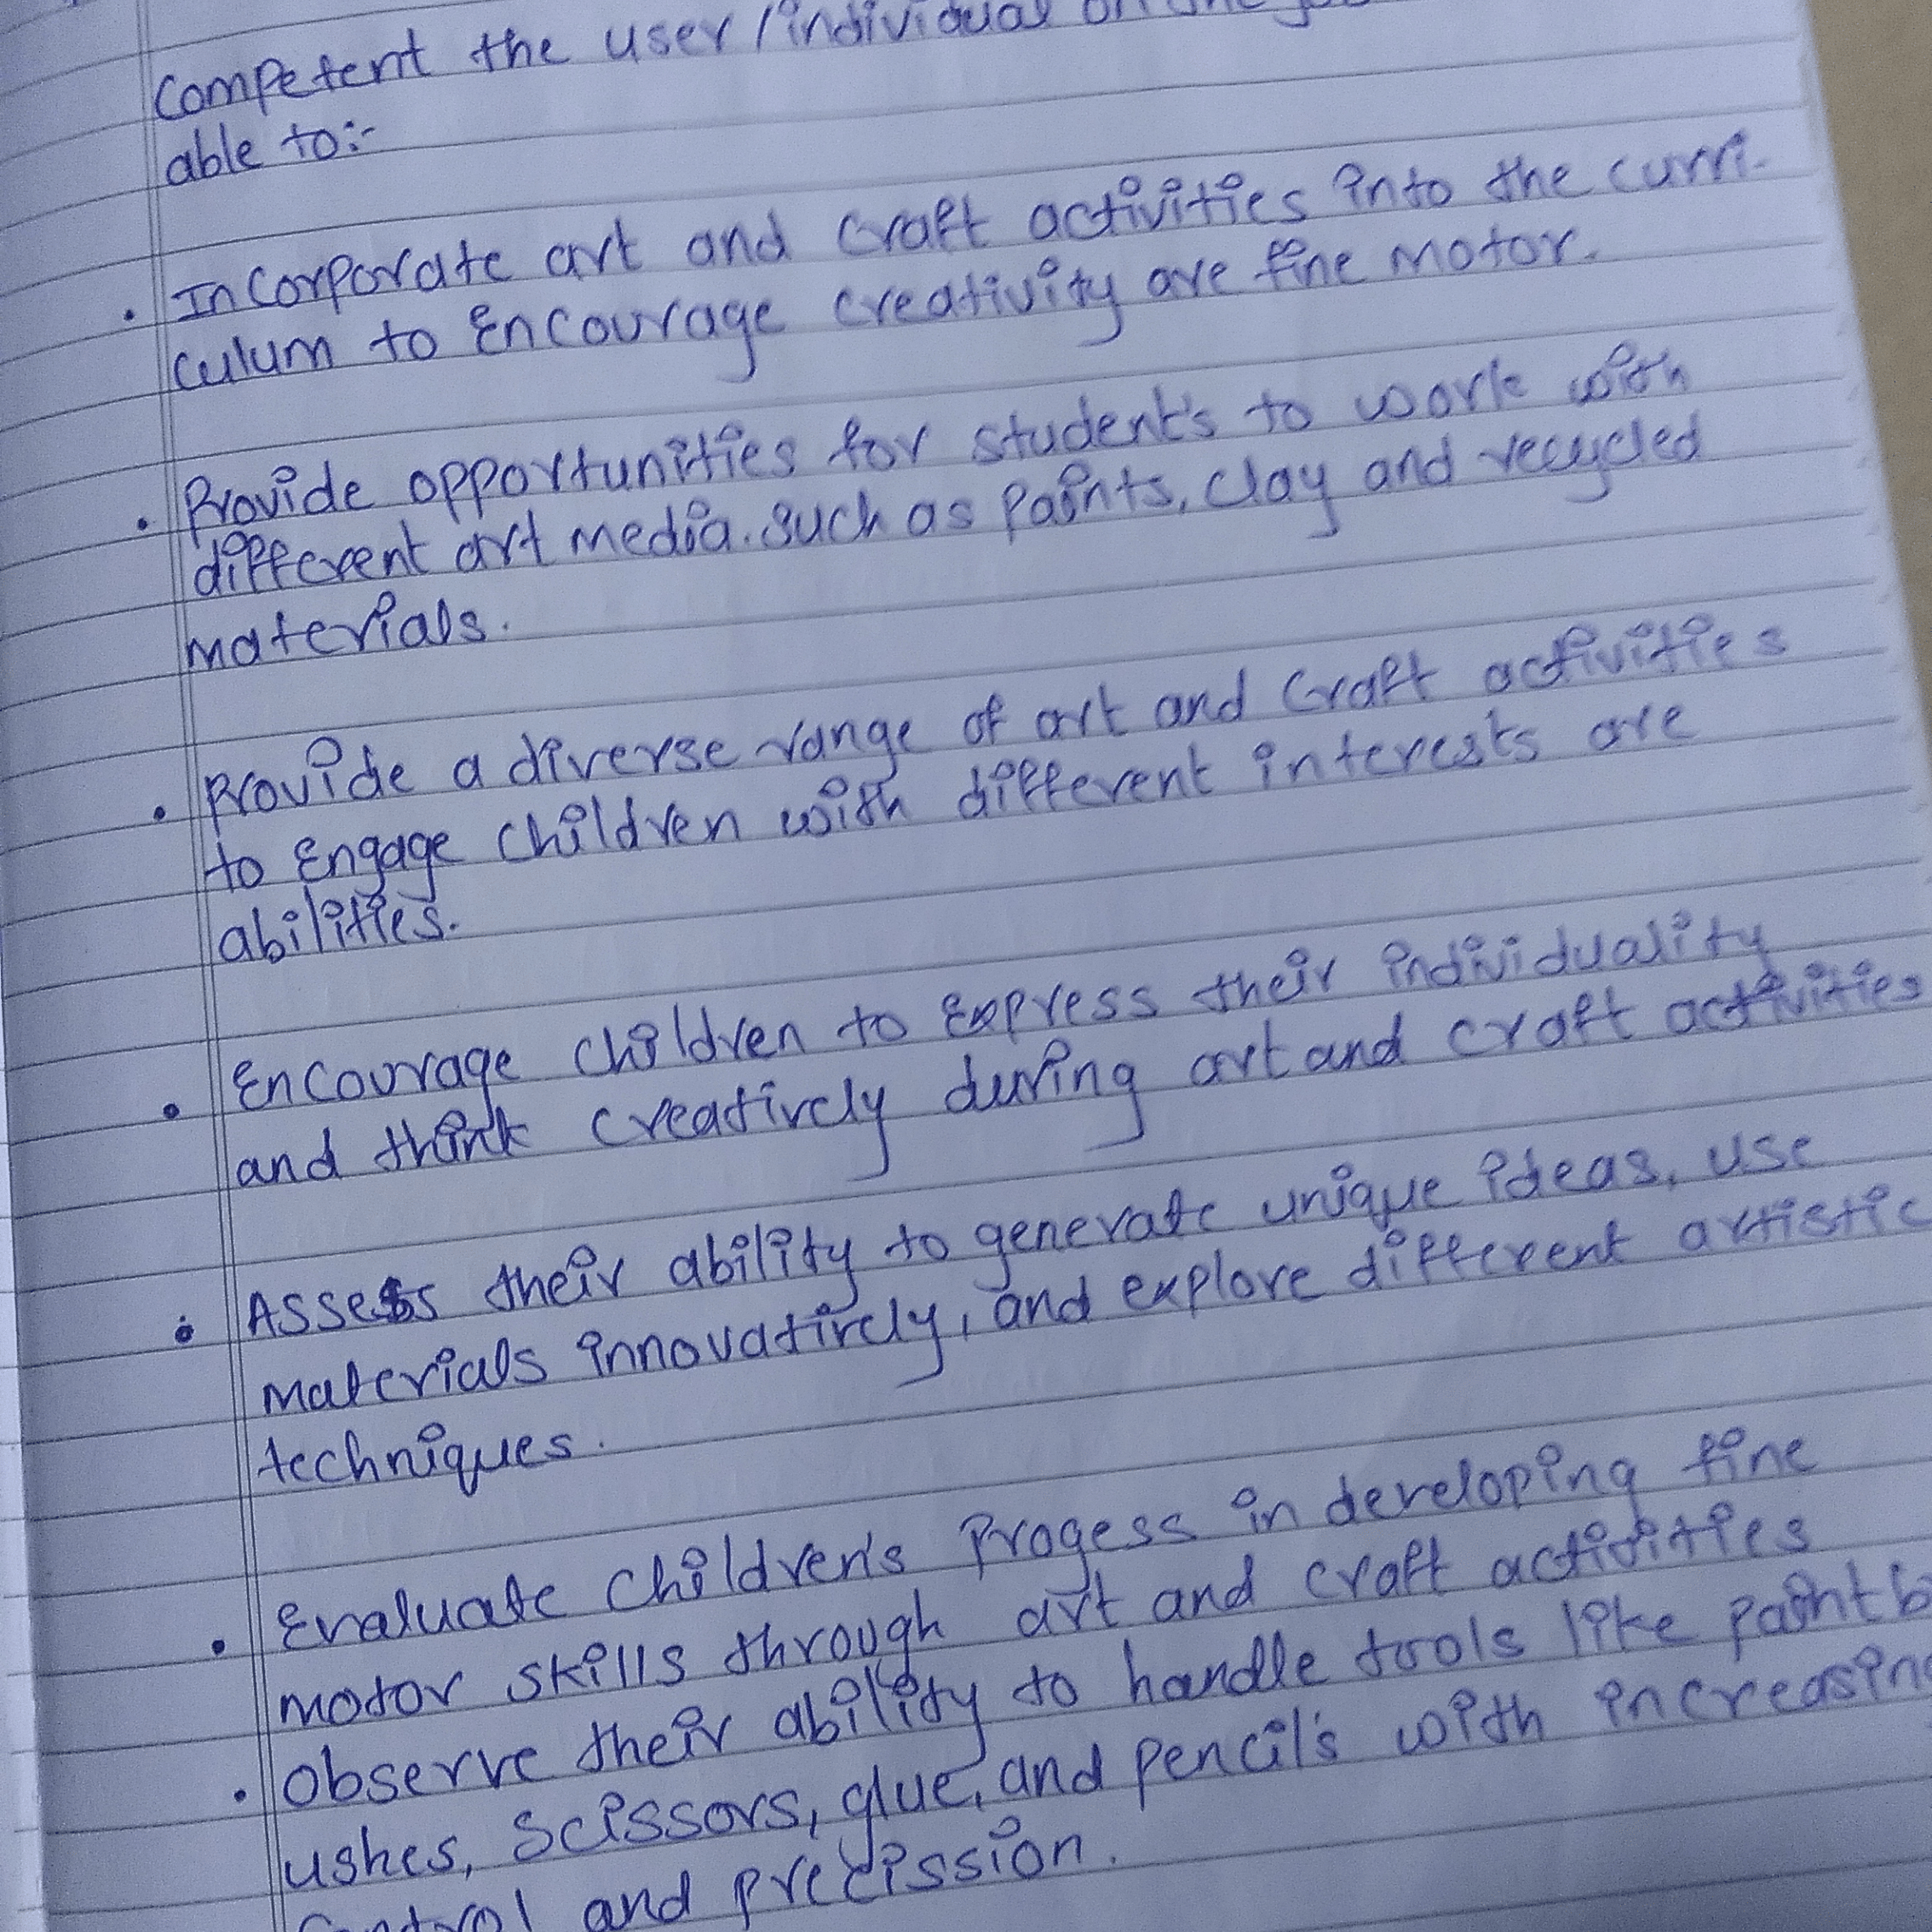 Competent the user/individual on the
able to:-
• Incorporate art and craft activities into the curri-
culum to Encourage creativity are fine motor.
• Provide opportunities for student's to work with
different art media. such as paints, clay and recycled
materials.
• Provide a diverse range of art and craft activities
to Engage children with different interests are
abilities.
• Encourage children to Express their individuality
and think creatively during art and craft activities
• Assess their ability to generate unique ideas, use
materials innovatively, and explore different artistic
techniques.
• Evaluate children's Progess in developing fine
motor skills through art and craft activities
• Observe their ability to handle tools like paintbr
ushes, scissors, glue, and pencil's with increasing
Control and precission.